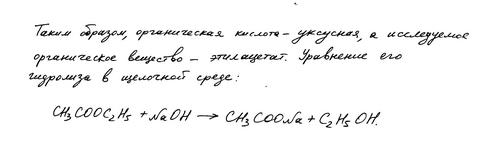 Таким образом, органическая кислота – уксусная, а исследуемое
органическое вещество – этилацетат. Уравнение его
гидролиза в щелочной среде:
CH₃COOC₂H₅ + NaOH → CH₃COONa + C₂H₅OH.